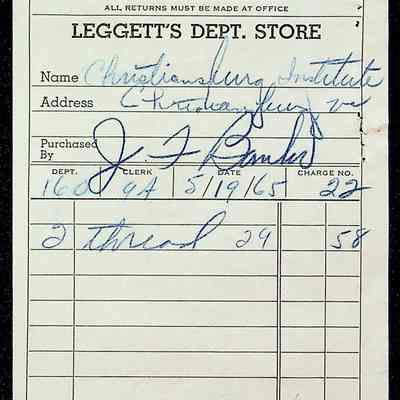 ALL RETURNS MUST BE MADE AT OFFICE
LEGGETT'S DEPT. STORE
Name Christiansburg Institute
Address Christiansburg Va
Purchased By J F Banks
DEPT. CLERK DATE CHARGE NO.
160 9A 5/19/65 22
2 thread 29 58